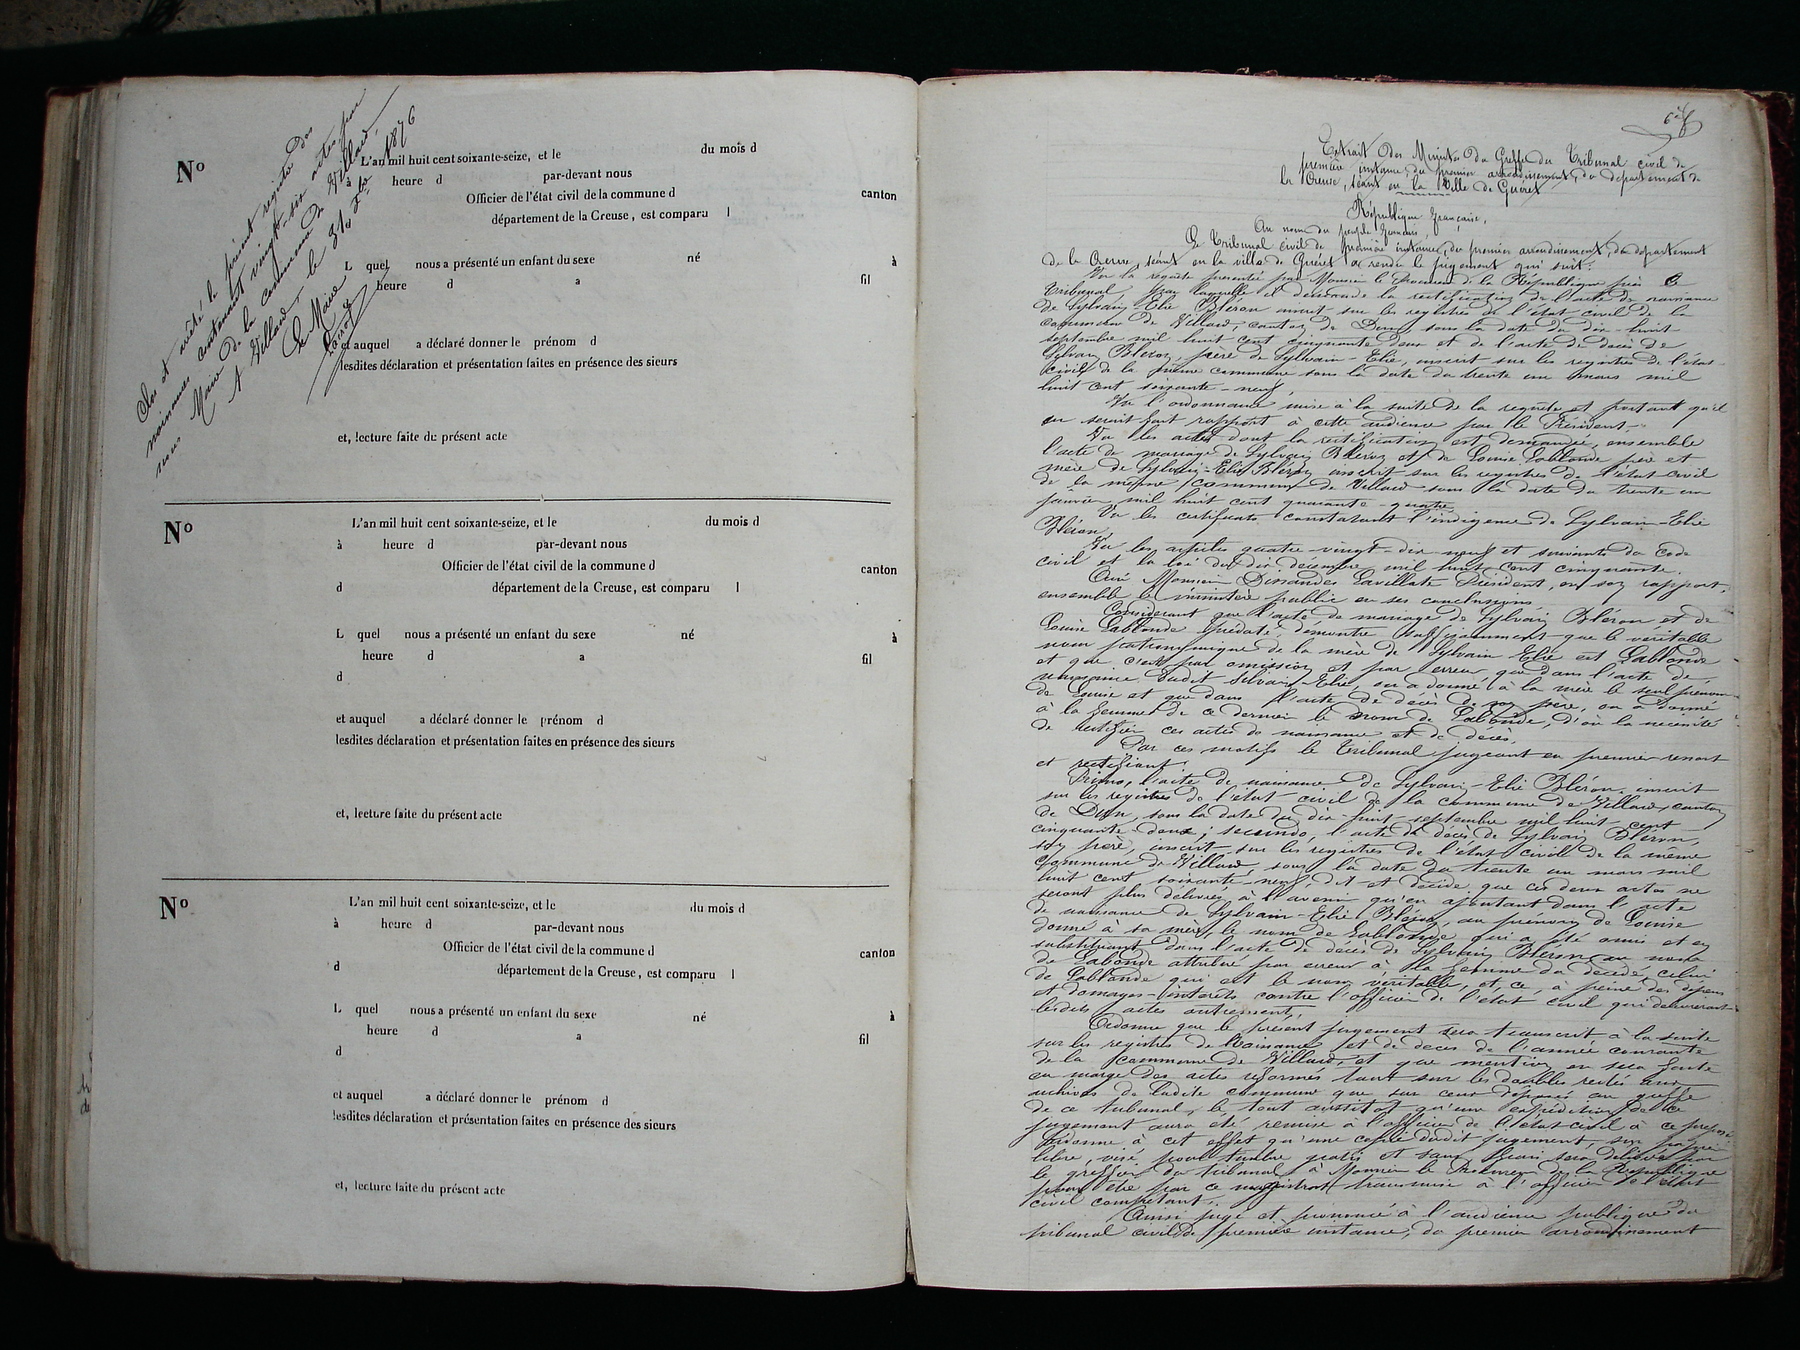 Clos et arrêté le présent registre des
naissances contenant vingt-six actes par
nous Maire de la commune de Villard
A Villard le 31 Xbre 1876
Le Maire
No
L'an mil huit cent soixante-seize, et le du mois d
à heure d par-devant nous
Officier de l'état civil de la commune d canton
département de la Creuse, est comparu l
L quel nous a présenté un enfant du sexe né à
heure d a fil
et auquel a déclaré donner le prénom d
lesdites déclaration et présentation faites en présence des sieurs
et, lecture faite du présent acte
No
L'an mil huit cent soixante-seize, et le du mois d
à heure d par-devant nous
Officier de l'état civil de la commune d canton
d département de la Creuse, est comparu l
L quel nous a présenté un enfant du sexe né à
heure d a fil
d
et auquel a déclaré donner le prénom d
lesdites déclaration et présentation faites en présence des sieurs
et, lecture faite du présent acte
No
L'an mil huit cent soixante-seize, et le du mois d
à heure d par-devant nous
Officier de l'état civil de la commune d canton
d département de la Creuse, est comparu l
L quel nous a présenté un enfant du sexe né à
heure d a fil
d
et auquel a déclaré donner le prénom d
lesdites déclaration et présentation faites en présence des sieurs
et, lecture faite du présent acte
Extrait des Minutes du Greffe du Tribunal civil de
première instance du premier arrondissement, du département de
la Creuse, séant en la Ville de Guéret
République française,
Au nom du peuple français,
Le Tribunal civil de première instance, du premier arrondissement, du département
de la Creuse, séant en la ville de Guéret a rendu le jugement qui suit:
Vu la requête présentée par Monsieur le Procureur de la République près le
Tribunal par laquelle il demande la rectification de l'acte de naissance
de Sylvain Elie Bléron inscrit sur les registres de l'état civil de la
commune de Villard, canton de Dun sous la date du dix-huit
septembre mil huit cent cinquante deux et de l'acte de décès de
Sylvain Bléron, père de Sylvain-Elie, inscrit sur les registres de l'état
civil de la même commune sous la date du trente un mars mil
huit cent soixante-neuf
Vu l'ordonnance mise à la suite de la requête et portant qu'il
en serait fait rapport à cette audience par le Président-
Vu les actes dont la rectification est demandée, ensemble
l'acte de mariage de Sylvain Bléron et de Louise Lablonde père et
mère de Sylvain-Elie Bléron inscrit sur les registres de l'état civil
de la même commune de Villard sous la date du trente un
janvier mil huit cent quarante-quatre
Vu les certificats constatant l'indigence de Sylvain-Elie
Bléron
Vu les articles quatre-vingt-dix-neuf et suivants du Code
civil et la loi du dix décembre mil huit cent cinquante.
Ouï Monsieur Dissandes Lavillate Président, en son rapport,
ensemble le ministère public en ses conclusions
Considérant que l'acte de mariage de Sylvain Bléron et de
Louise Lablonde prédaté, démontre suffisamment que le véritable
nom patronymique de la mère de Sylvain Elie est Lablonde
et que c'est par omission et par erreur, que dans l'acte de
naissance dudit Silvain Elie on a donné à la mère le seul prénom
de Louise et que dans l'acte de décès de son père, on a donné
à la femme de ce dernier le nom de Labonde, d'où la nécessité
de rectifier ces actes de naissance et de décès,
Par ces motifs le Tribunal jugeant en premier ressort
et rectifiant:
Primo, l'acte de naissance de Sylvain-Elie Bléron inscrit
sur les registres de l'état civil de la commune de Villard, canton
de Dun, sous la date du dix-huit septembre mil huit-cent
cinquante deux; secundo, l'acte de décès de Sylvain Bléron,
son père, inscrit sur les registres de l'état civil de la même
commune de Villard, sous la date du trente un mars mil
huit cent soixante-neuf, dit et décide que ces deux actes ne
seront plus délivrés à l'avenir qu'en ajoutant dans l'acte
de naissance de Sylvain-Elie Bléron, au prénom de Louise
donné à sa mère le nom de Lablonde qui a été omis et en
substituant dans l'acte de décès de Sylvain Bléron au nom
de Labonde attribué par erreur à la femme du décédé, celui
de Lablonde qui est le nom véritable, et, ce, à peine des dépens
et domages-intérêts contre l'officier de l'état civil qui délivrerait
lesdits actes autrement,
Ordonne que le présent jugement sera transcrit à la suite
sur les registres de Naissance et de décès de l'année courante
de la commune de Villard, et que mention en sera faite
en marge des actes réformés tant sur les doubles restés aux
archives de ladite commune que sur ceux déposés au greffe
de ce tribunal, le tout aussitôt qu'une expédition de ce
jugement aura été remise à l'officier de l'état civil à ce préposé
Ordonne à cet effet qu'une copie dudit jugement, sur papier
libre, visé pour timbre gratis et sans frais sera délivrée par
le greffier du tribunal à Monsieur le Procureur de la République
pour être par ce magistrat transmise à l'officier de l'état
civil compétant.
Ainsi jugé et prononcé à l'audience publique du
tribunal civil de première instance, du premier arrondissement